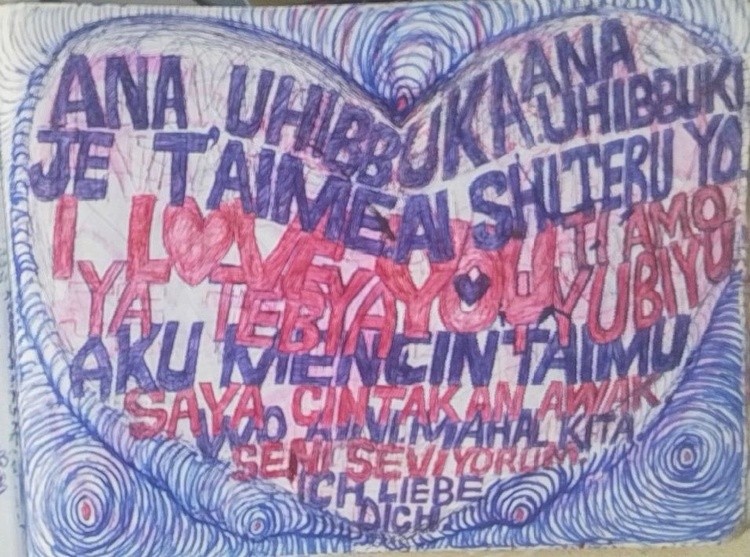 ANA UHIBBUKA ANA UHIBBUKI
JE T'AIME AI SHITERU YO
I LOVE YOU TI AMO
YA TEBYA YUBIYU
AKU MENCINTAIMU
SAYA CINTAKAN AWAK
WO AI NI MAHAL KITA
SENI SEVIYORUM
ICH LIEBE
DICH